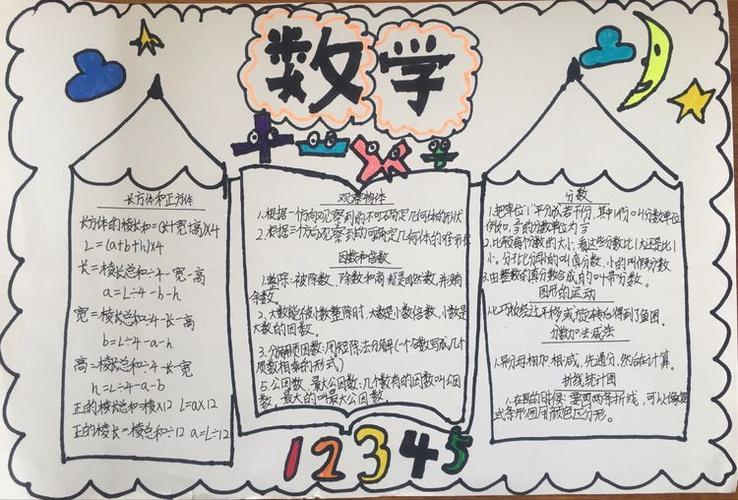 数学
长方体和正方体
长方体的棱长和=(长+宽+高)×4
L=(a+b+h)×4
长=棱长总和÷4-宽-高
a=L÷4-b-h
宽=棱长总和÷4-长-高
b=L÷4-a-h
高=棱长总和÷4-长-宽
h=L÷4-a-b
正的棱长总和=棱×12 L=a×12
正的棱长=棱总和÷12 a=L÷12
观察物体
1.根据一个方向观察到的不可确定几何体的形状
2.根据三个方向观察到的可确定几何体的
因数和倍数
1.整除:被除数、除数和商都是自然数,并
余数。
2.大数能被小数整除时,大数是小数倍数,小数是
大数的因数。
3.分解质因数:用短除法分解(一个合数写成几个
质数相乘的形式)
5.公因数、最大公因数:几个数有的因数叫公因
数。最大的叫最大公因数。
分数
1.把单位“1”平均分成若干份,其中1份叫分数单位
例如,的分数单位为
2.比较每个数的大小,看这些分数比1大还是比1
小。分子比分母的叫真分数,小的叫假分数
3.由整数和真分数合成的叫带分数。
图形的运动
1.七巧板经过平移或旋转后得到了鱼图。
分数加法减法
1.异分母相加相减,先通分,然后在计算。
折线统计图
1.在画的时候:要画两条折线,可以像
式条形图用颜色区分形。
1 2 3 4 5